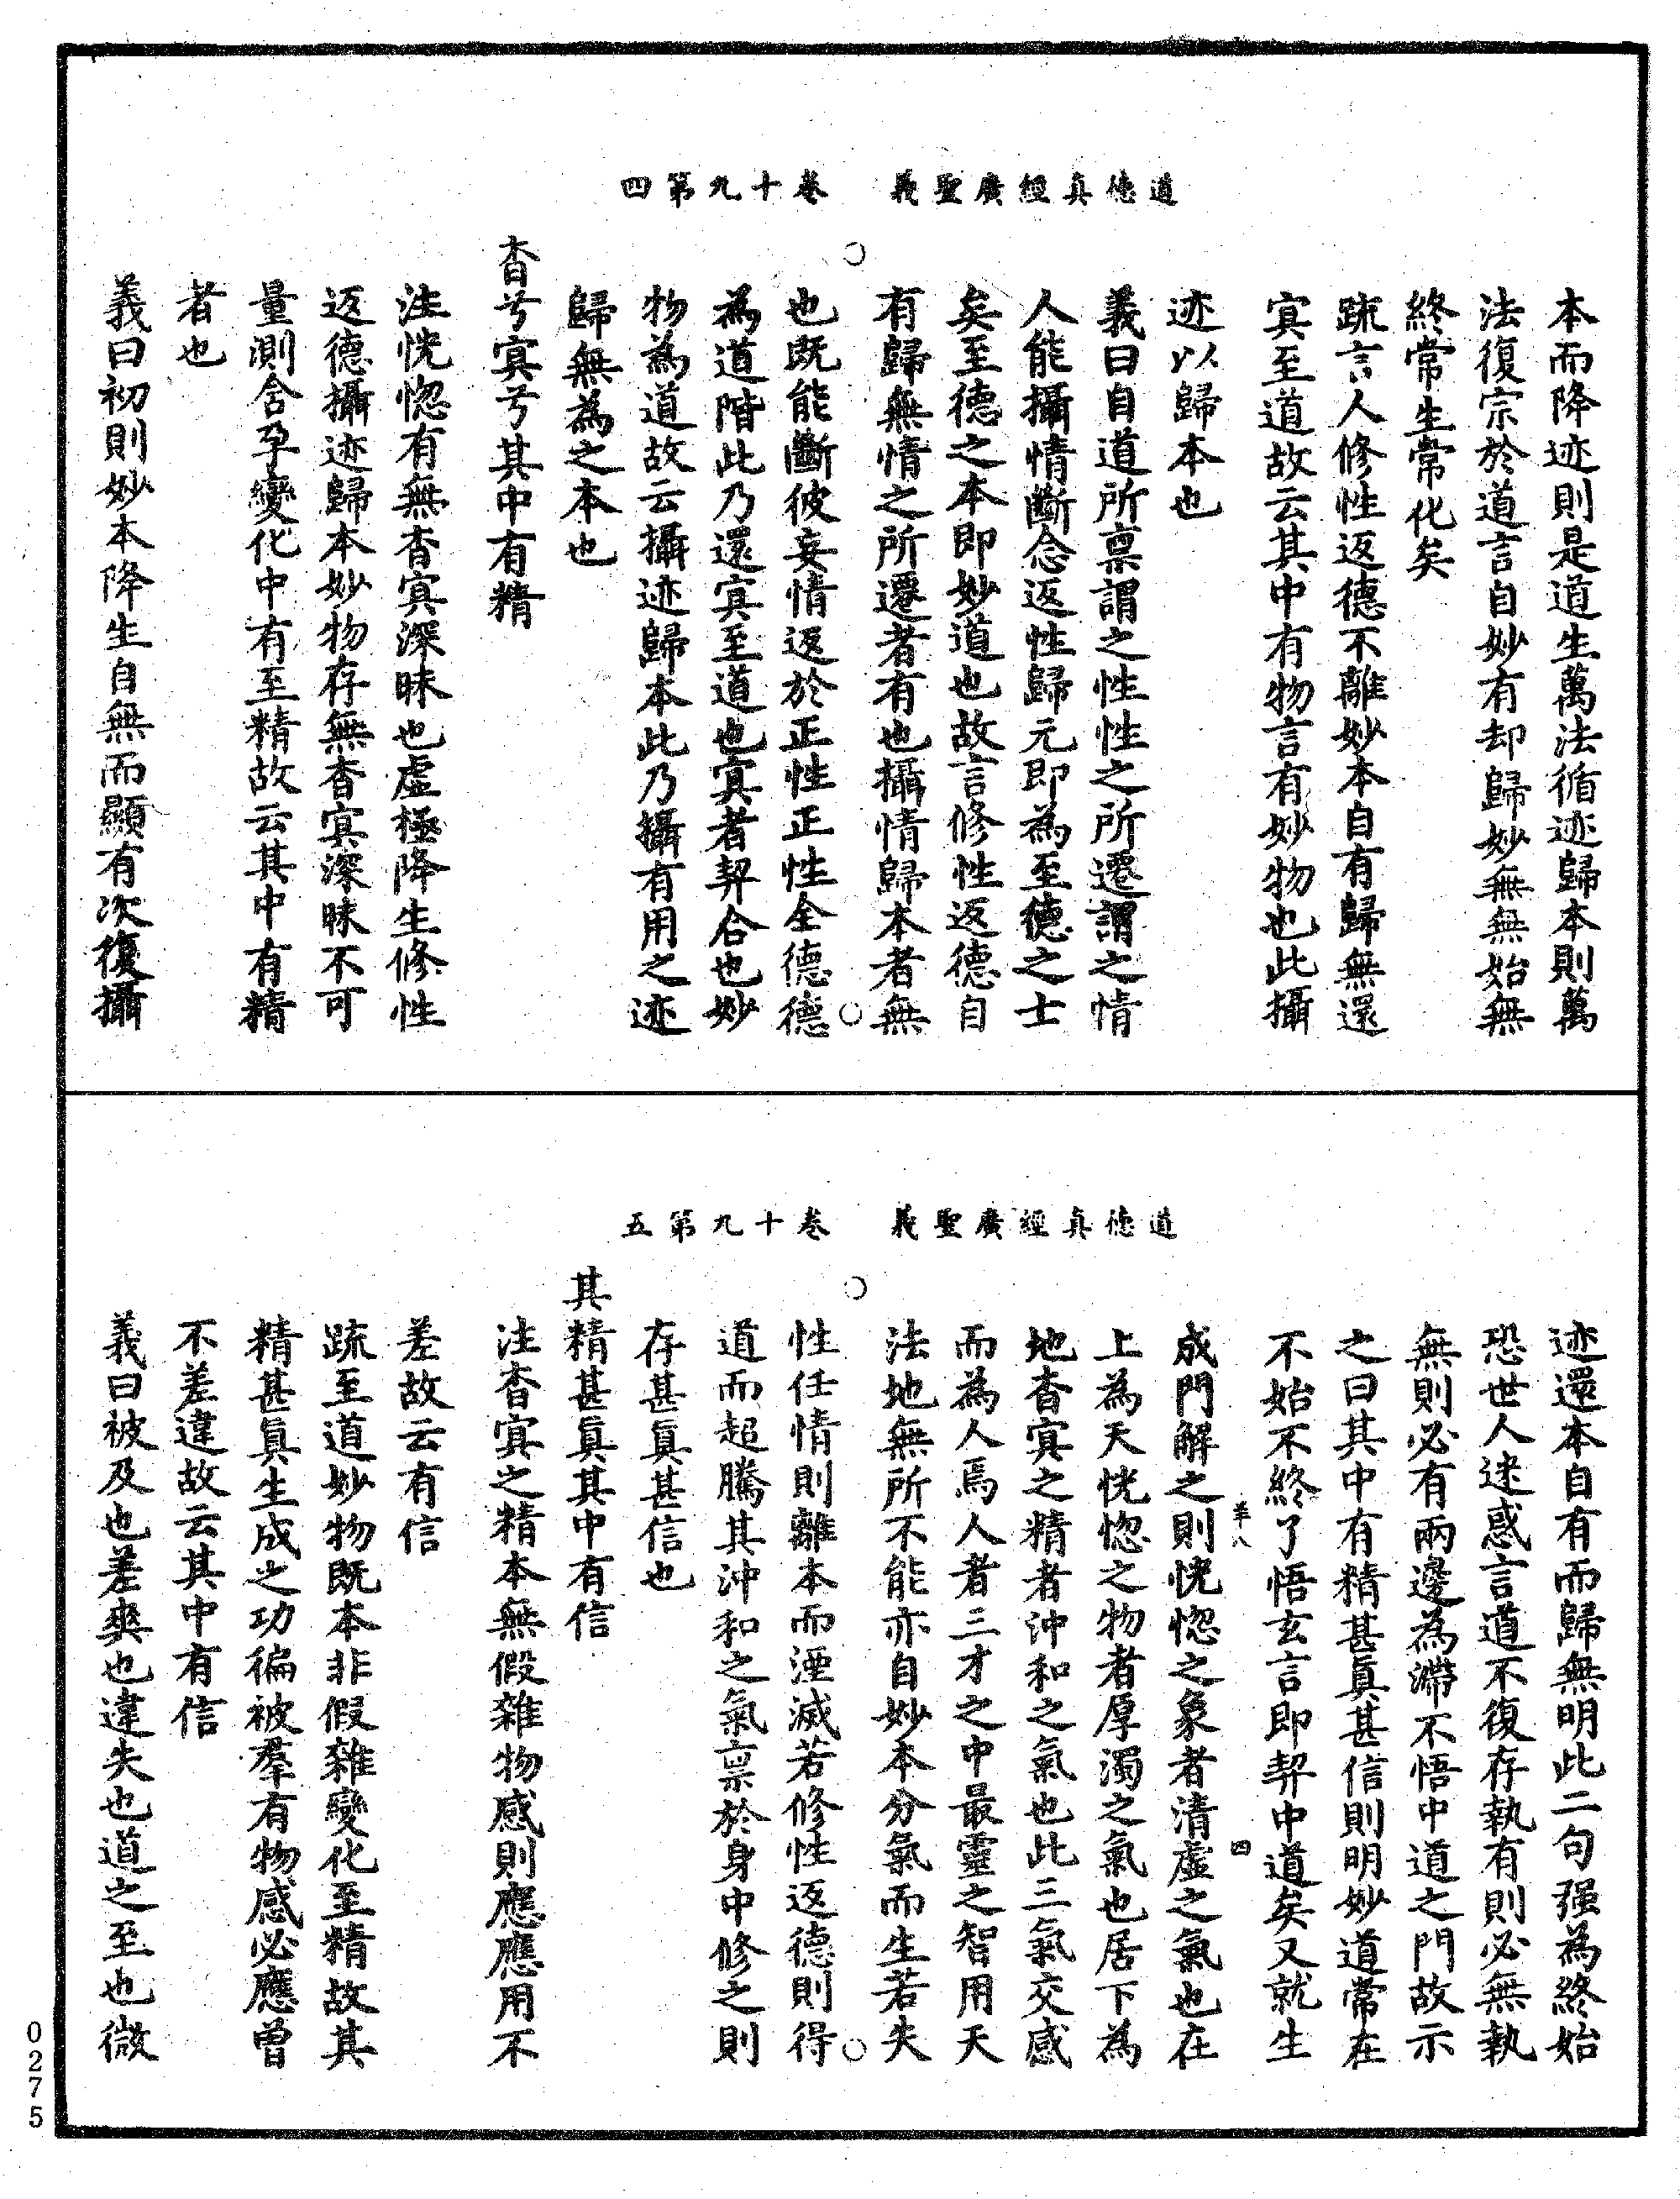 道德真經廣聖義　卷十九第四
本而降迹則是道生萬法循迹歸本則萬
法復宗於道言自妙有却歸妙無無始無
終常生常化矣
疏言人修性返德不離妙本自有歸無還
㝠至道故云其中有物言有妙物也此攝
迹以歸本也
義曰自道所稟謂之性性之所遷謂之情
人能攝情斷念返性歸元即為至德之士
矣至德之本即妙道也故言修性返德自
有歸無情之所遷者有也攝情歸本者無
也既能斷彼妄情返於正性正性全德德
為道階此乃還㝠至道也㝠者契合也妙
物為道故云攝迹歸本此乃攝有用之迹
歸無為之本也
杳兮㝠兮其中有精
注恍惚有無杳㝠深昧也虛極降生修性
返德攝迹歸本妙物存無杳㝠深昧不可
量測含孕變化中有至精故云其中有精
者也
義曰初則妙本降生自無而顯有次復攝
道德真經廣聖義　卷十九第五
迹還本自有而歸無明此二句强為終始
恐世人迷惑言道不復存執有則必無執
無則必有兩邊為滯不悟中道之門故示
之曰其中有精甚真甚信則明妙道常在
不始不終了悟玄言即契中道矣又就生
羊八　四
成門解之則恍惚之象者清虛之氣也在
上為天恍惚之物者厚濁之氣也居下為
地杳㝠之精者沖和之氣也此三氣交感
而為人焉人者三才之中最靈之智用天
法地無所不能亦自妙本分氣而生若失
性任情則離本而湮滅若修性返德則得
道而超騰其沖和之氣稟於身中修之則
存甚真甚信也
其精甚真其中有信
注杳㝠之精本無假雜物感則應應用不
差故云有信
疏至道妙物既本非假雜變化至精故其
精甚真生成之功徧被羣有物感必應曾
不差違故云其中有信
義曰被及也差爽也違失也道之至也微
0275